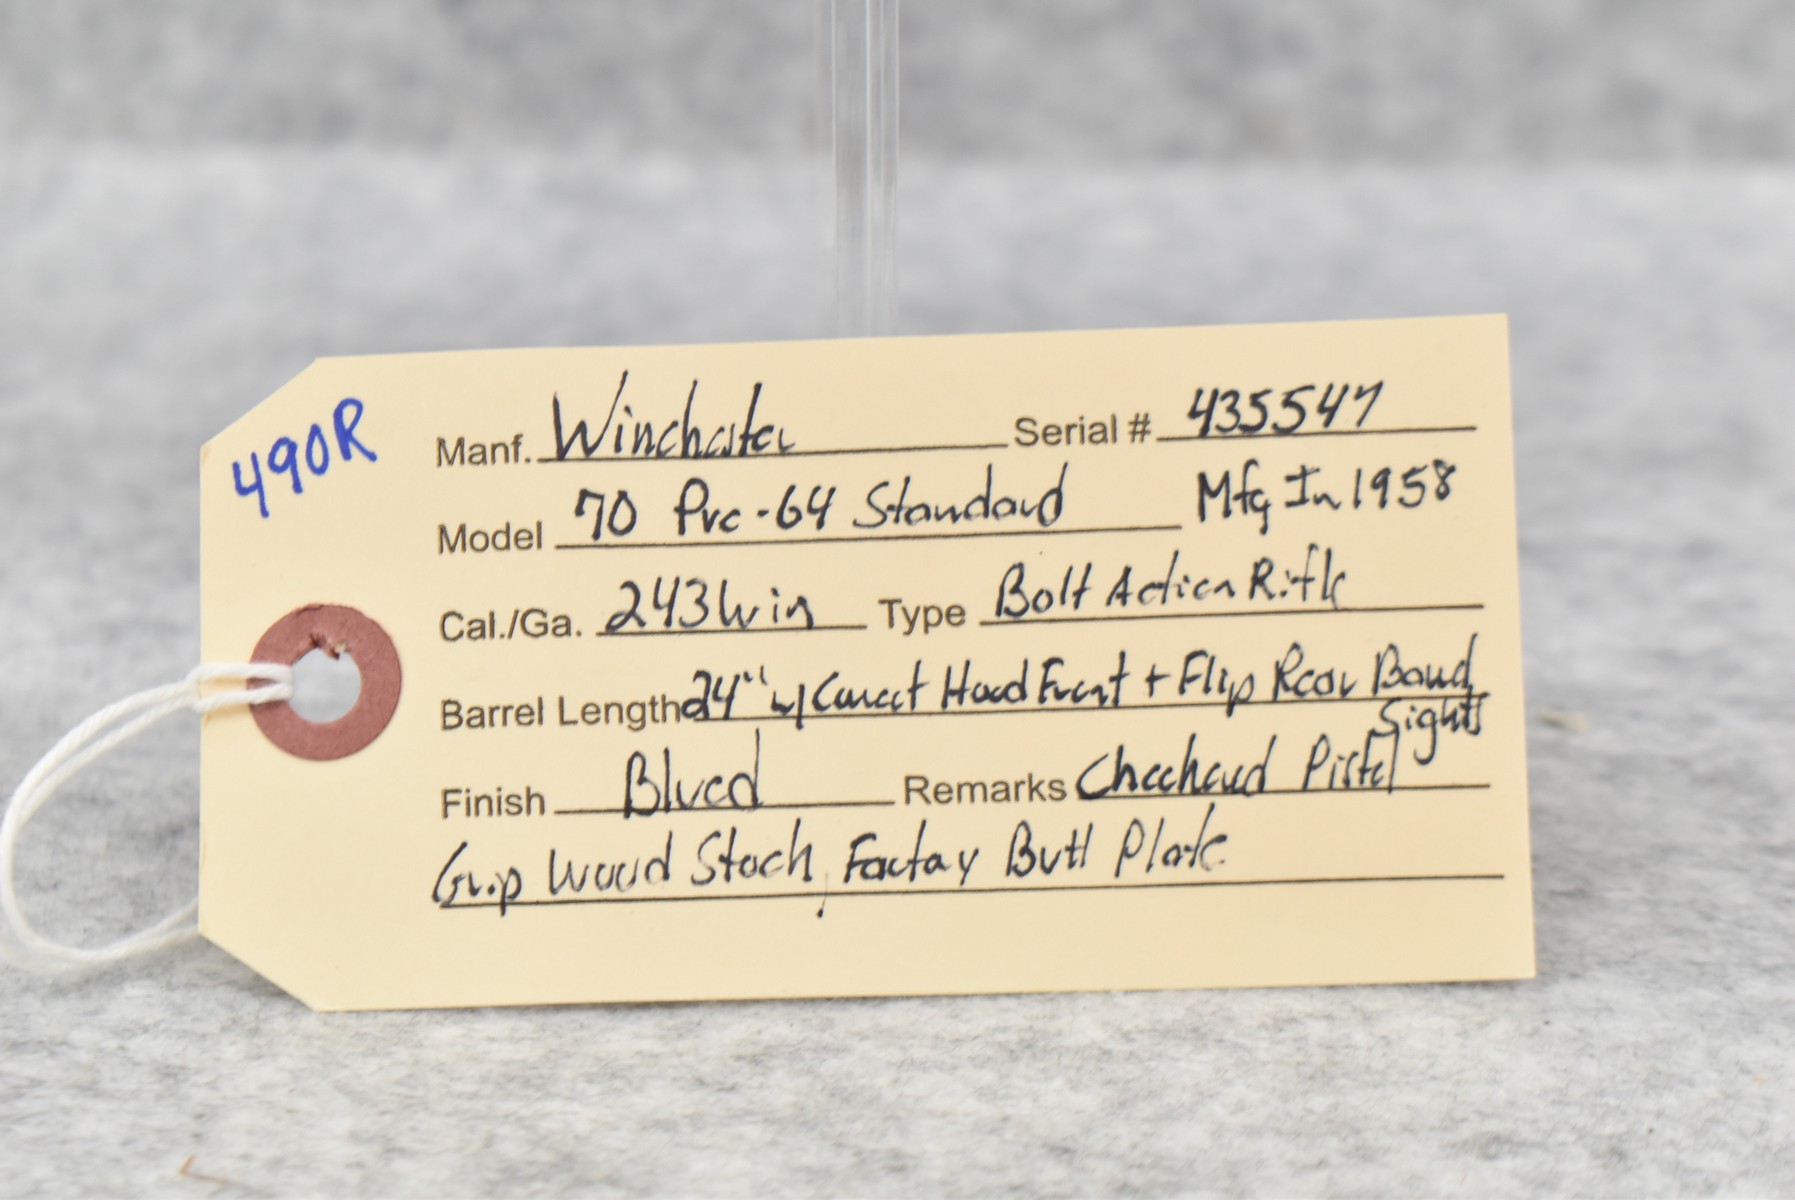 490R
Manf. Winchester Serial # 435547
Model 70 Pre-64 Standard Mfg In 1958
Cal./Ga. 243 Win Type Bolt Action Rifle
Barrel Length 24" w/ Correct Hood Front + Flip Rear Board
Sights
Finish Blued Remarks Checkered Pistol
Grip Wood Stock, Factory Butt Plate